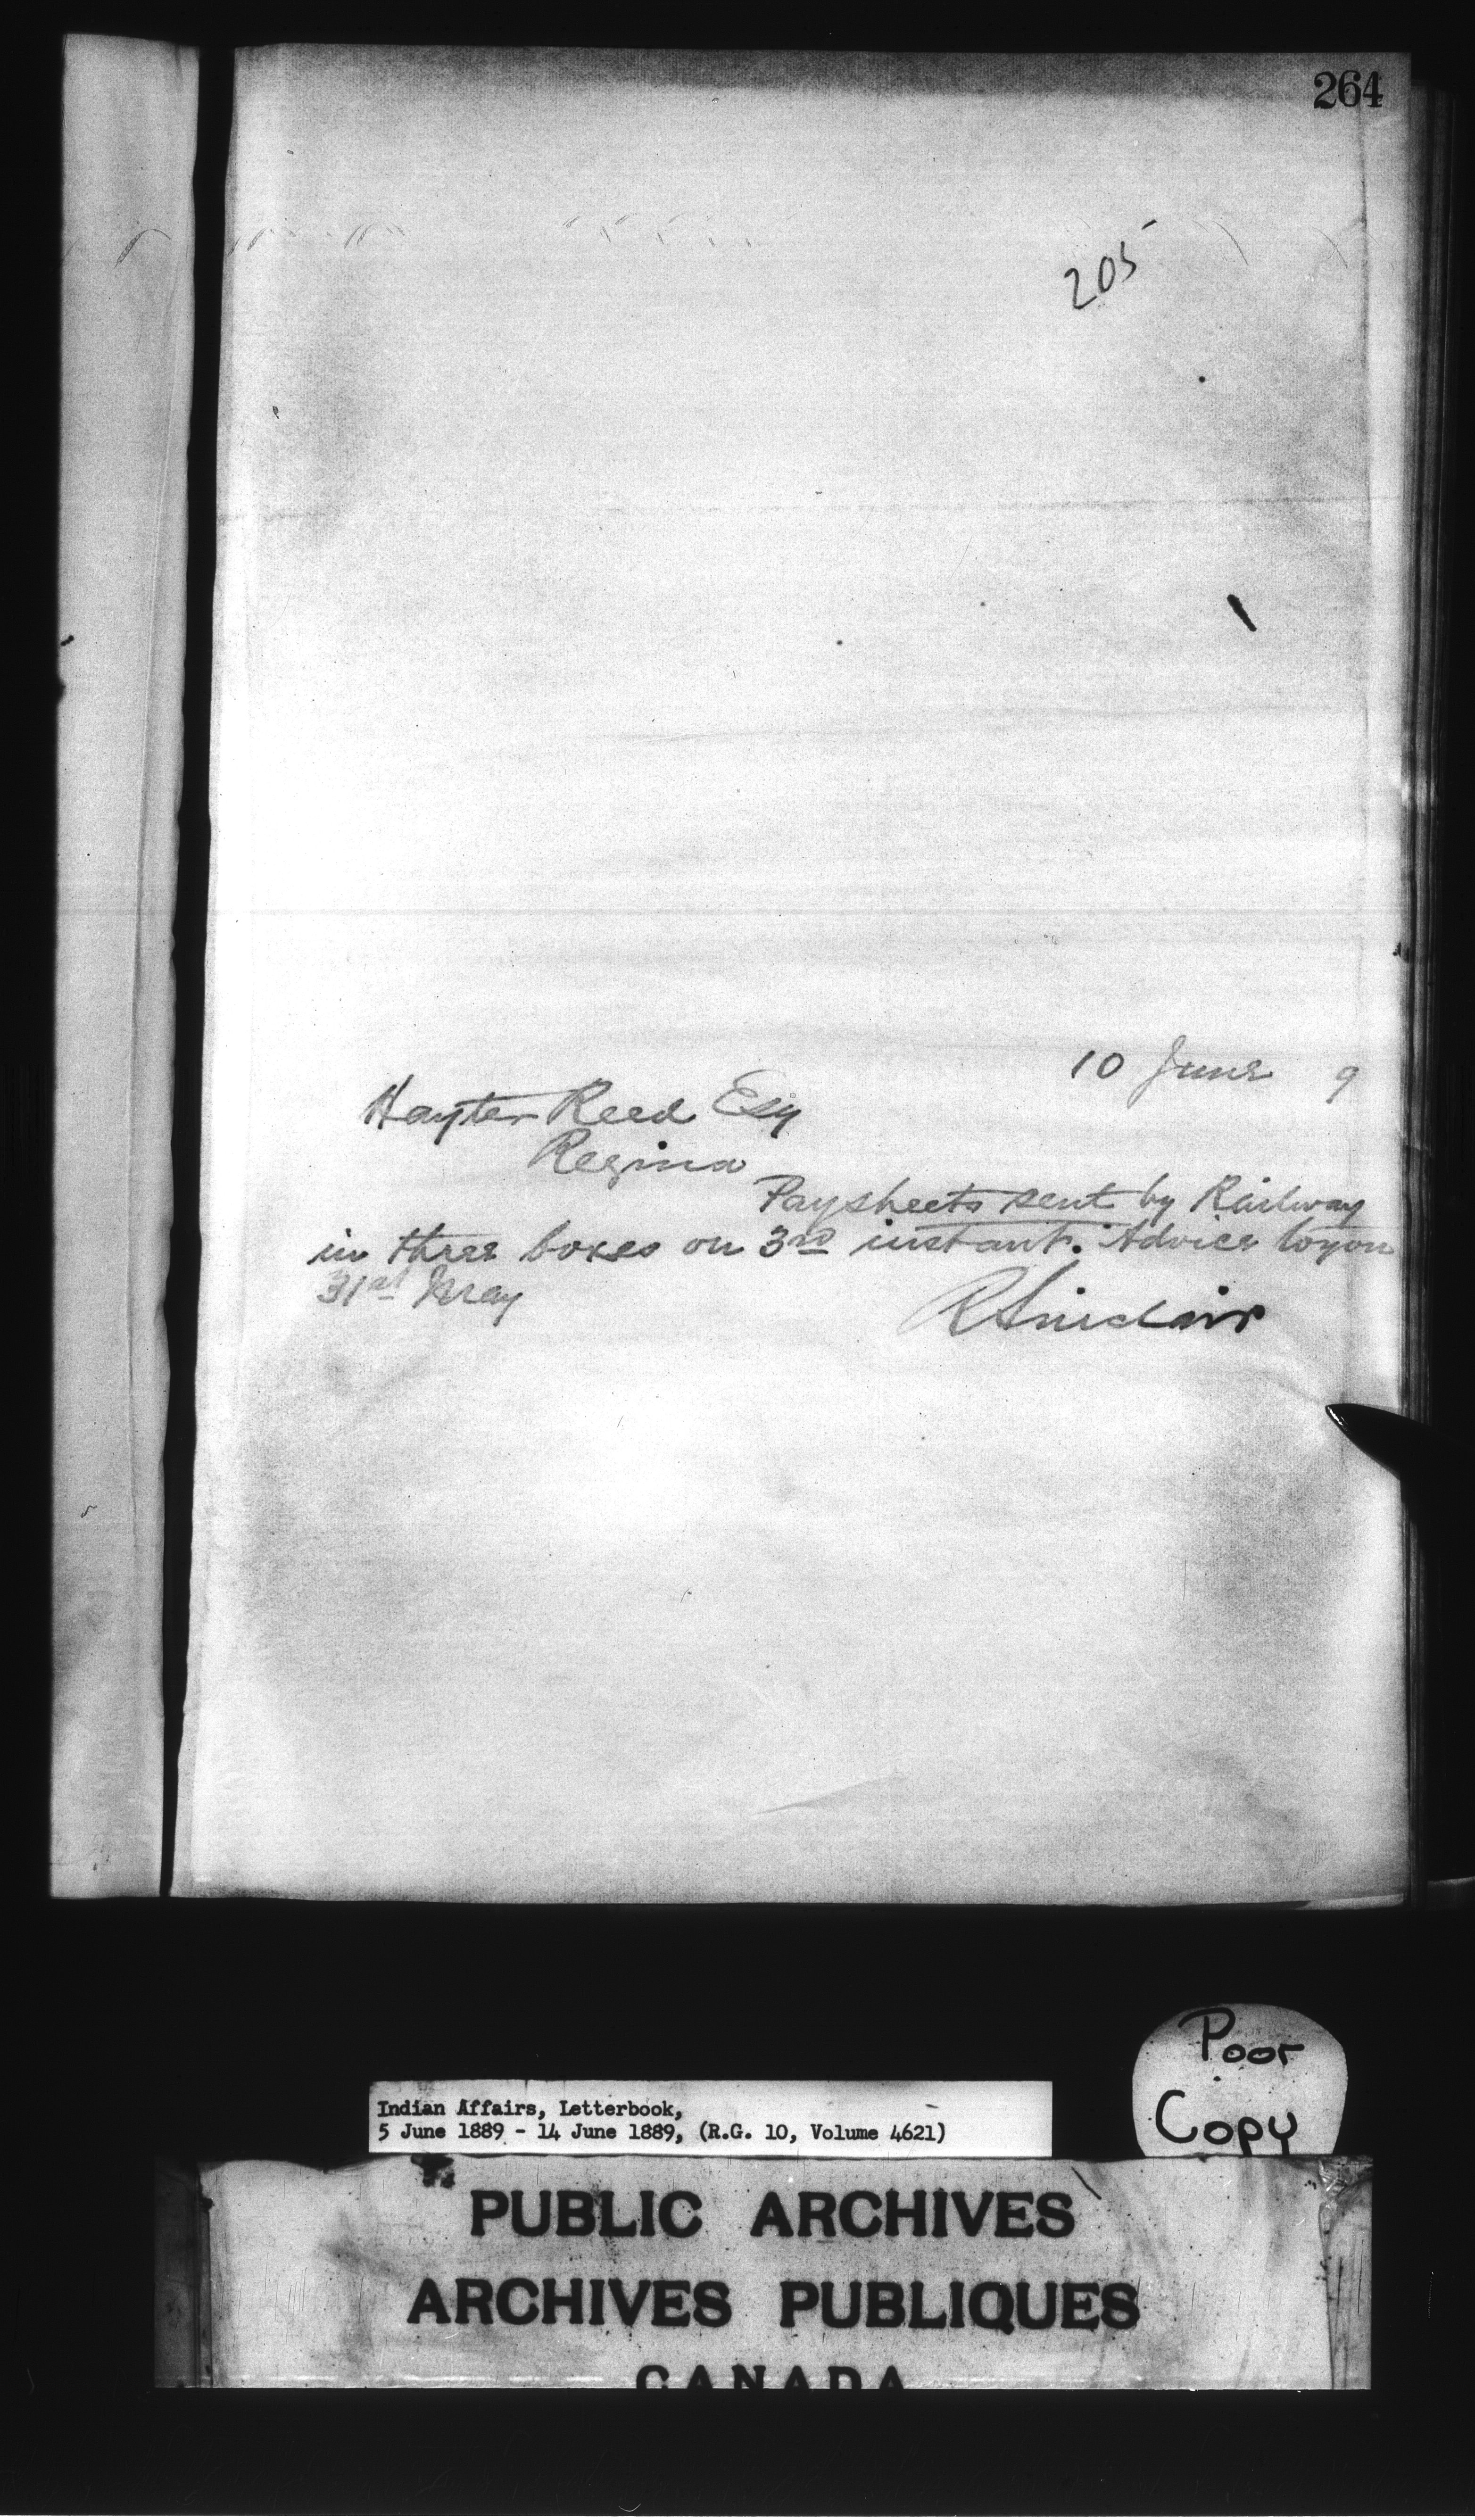 264
205
10 June 9
Hayter Reed Esq
Regina
Paysheets sent by Railway
in three boxes on 3rd instant. Advice to you
31st May
R Sinclair
Poor
Copy
Indian Affairs, Letterbook,
5 June 1889 - 14 June 1889, (R.G. 10, Volume 4621)
PUBLIC ARCHIVES
ARCHIVES PUBLIQUES
CANADA